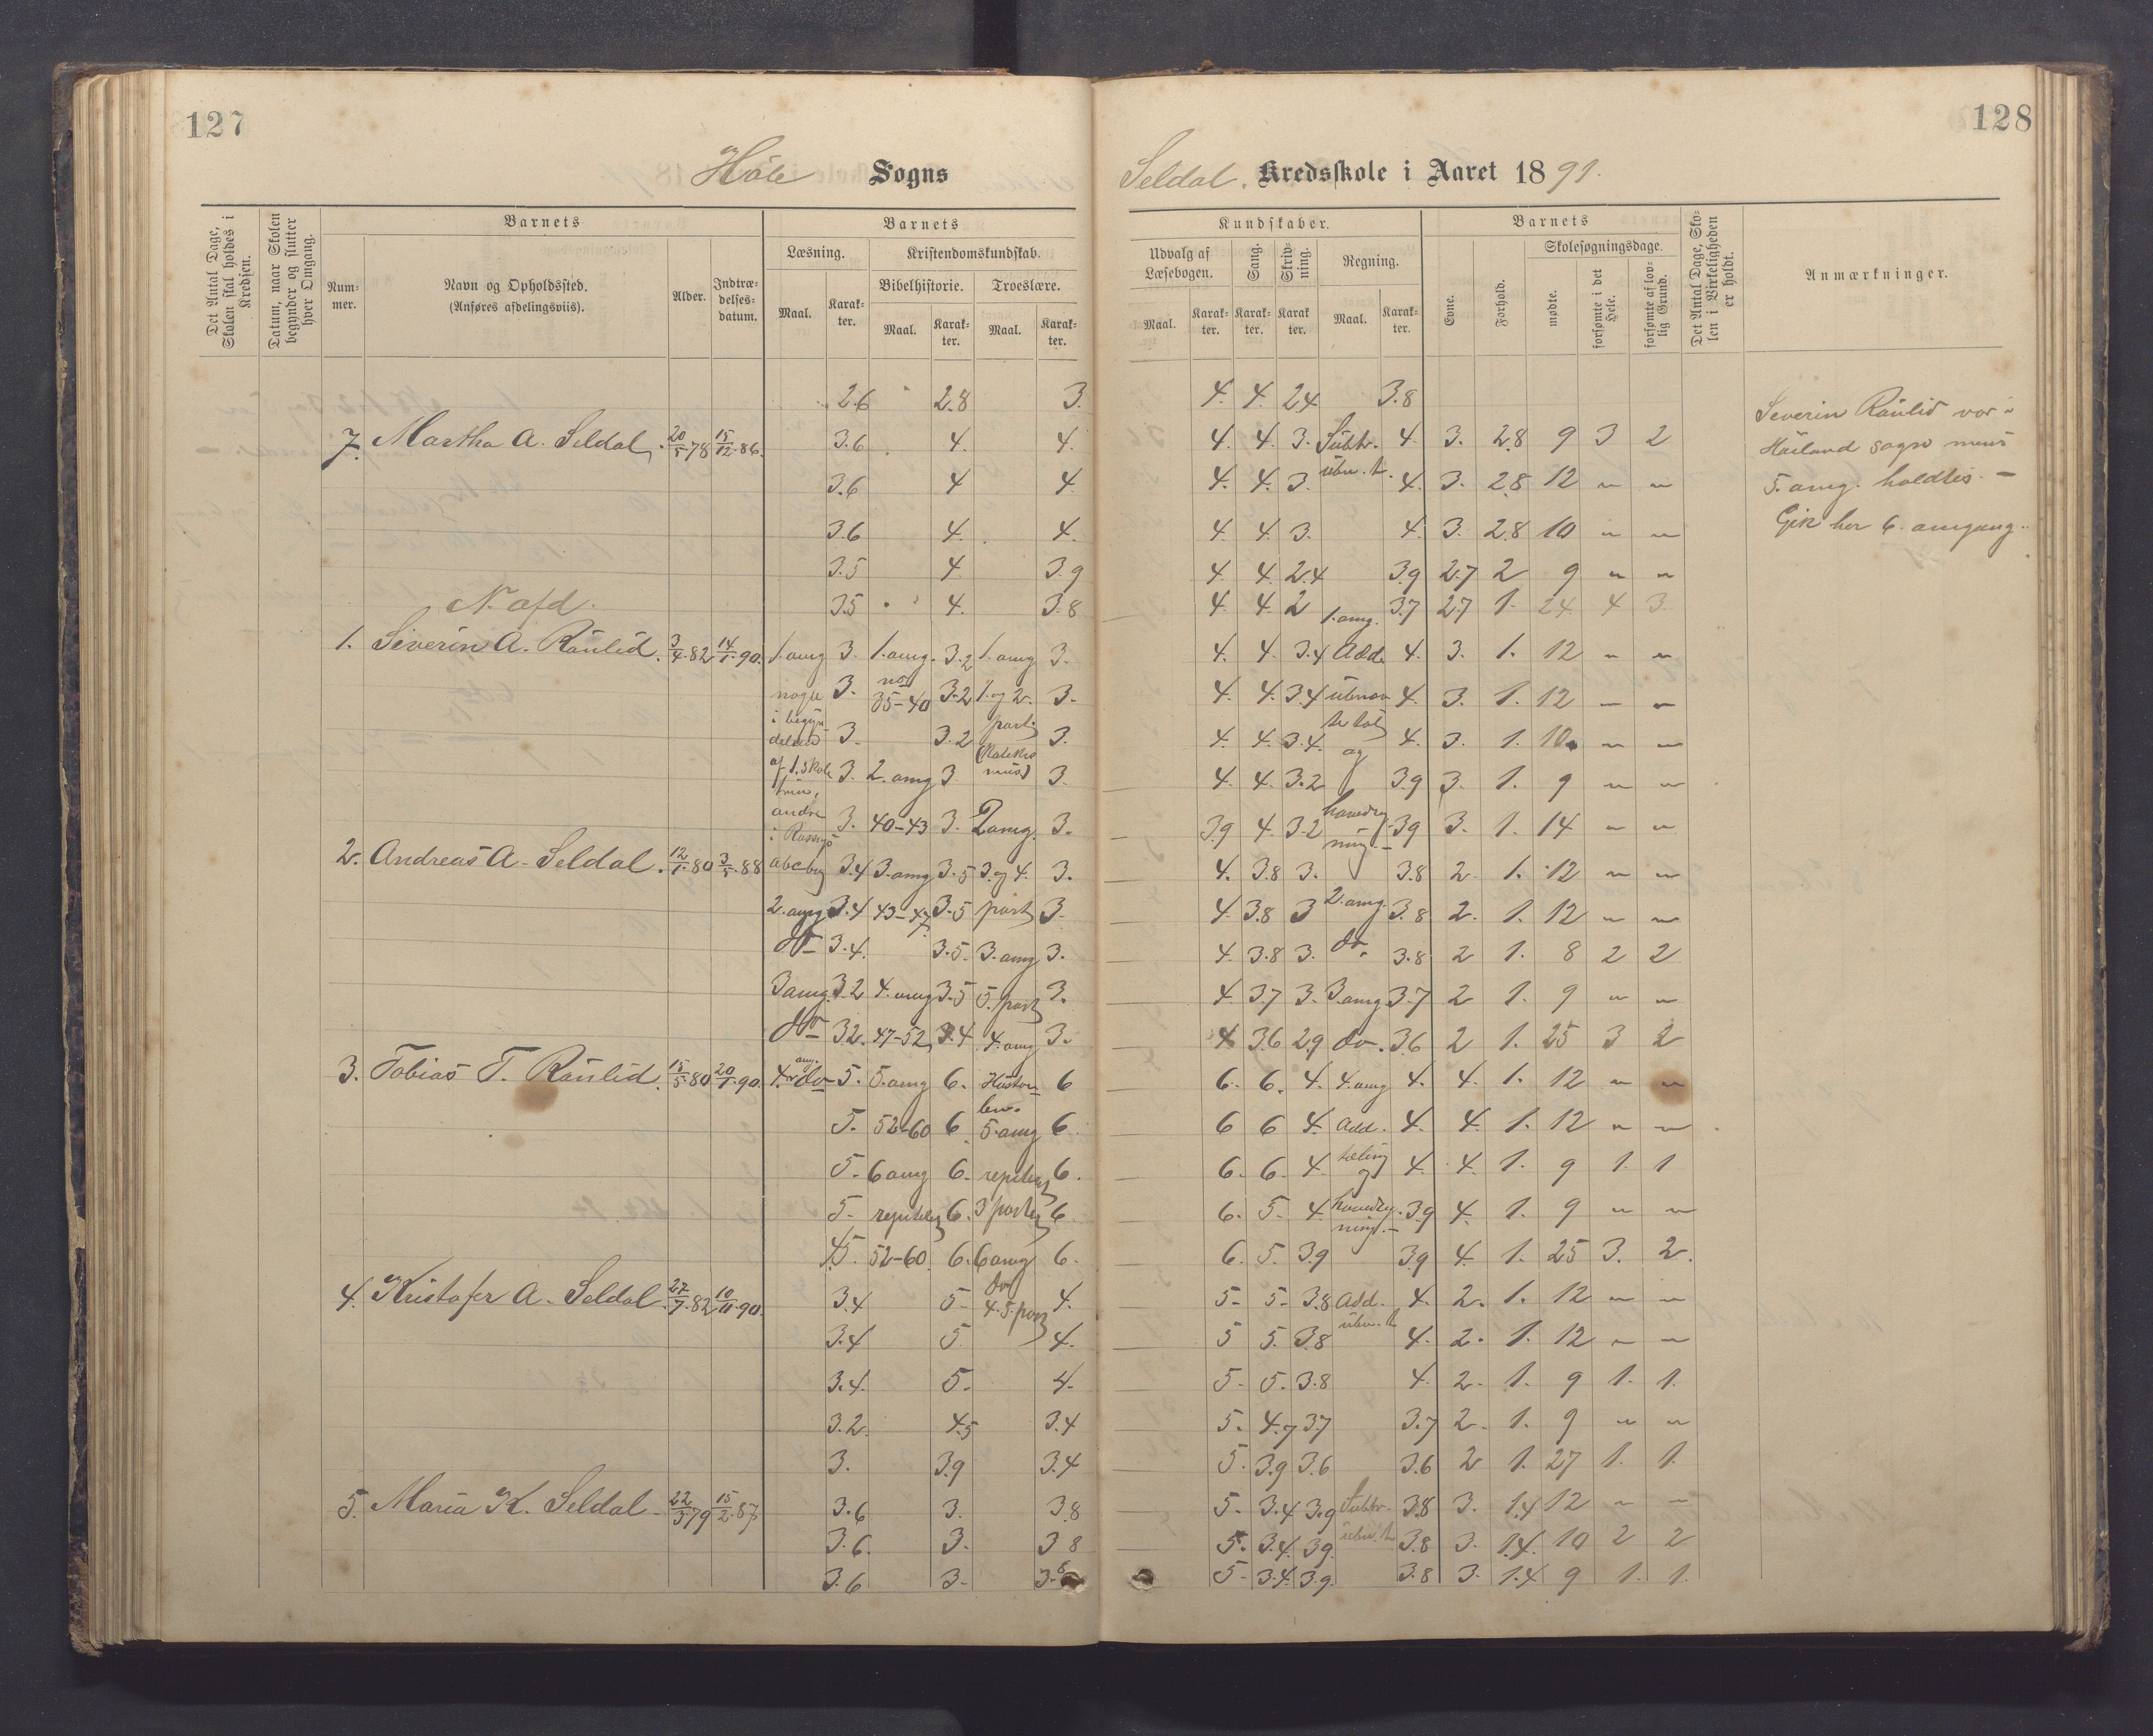 127
128
Høle Sogns
Seldal Kredsskole i Aaret 1891.
Det Antal Dage, Skolen skal holdes i Kredsen.
Datum, naar Skolen begynder og slutter hver Omgang.
Barnets
Num-
mer.
Navn og Opholdssted.
(Anføres afdelingsviis).
Alder.
Indtræ-
delses-
datum.
Barnets
Læsning.
Maal.
Karak-
ter.
Kristendomskundskab.
Bibelhistorie.
Maal.
Karak-
ter.
Troeslære.
Maal.
Karak-
ter.
Kundskaber.
Udvalg af
Læsebogen.
Maal.
Karak-
ter.
Sang.
Karak-
ter.
Skriv-
ning.
Karak
ter.
Regning.
Maal.
Karak-
ter.
Barnets
Evne.
Forhold.
Skolesøgningsdage.
mødte.
forsømte i det Hele.
forsømte af lov-
lig Grund.
Det Antal Dage, Sko-
len i Virkeligheden
er holdt.
Anmærkninger.
2.6 2.8 3. 4. 4. 2.4 3.8
7. Martha A. Seldal. 20/5.78 15/12.86. 3.6 4. 4. 4. 4. 3. Subtr. 4. 3. 2.8 9 3 2
3.6 4 4 4. 4. 3. ubn. t. 4. 3. 2.8 12 " "
3.6 4. 4. 4. 4. 3. 4. 3. 2.8 10 " "
3.5 4 3.9 4. 4. 2.4 3.9 2.7 2 9 " "
N. afd. 3.5 4. 3.8 4. 4. 2 1. omg. 3.7 2.7 1. 24. 4 3
1. Severin A. Rånlid. 3/4.82 14/1.90. 1. omg 3. 1. omg. 3.2 1. omg 3. 4. 4. 3.4 Add. 4. 3. 1. 12 " "
nogle 3. no 35-40 3.2 1. og 2. 3. 4. 4. 3.4 4. 3. 1. 12 " "
i begyn
delsen 3. 3.2 part. 3. 4. 4. 3.4. og 4. 3. 1. 10. " "
af 1. skole
trin, 3. 2. omg 3 3. 4. 4. 3.2 3.9 3. 1. 9 " "
andre
i 3. 40-43 3. 2 omg. 3. 3.9 4. 3.2 3.9 3. 1. 14 " "
2. Andreas A. Seldal. 12/1.80 3/5.88 abcbog 3.4 3. omg 3.5 3. og 4. 3. 4. 3.8 3. 3.8 2. 1. 12 " "
2. omg 3.4 43-47 3.5 part 3. 4. 3.8 3 2. omg. 3.8 2. 1. 12 " "
do 3.4. 3.5. 3. omg 3. 4. 3.8 3. do. 3.8 2 1. 8 2 2
3 omg. 3.2 4. omg 3.5 5. part 3. 4 3.7 3. 3. omg 3.7 2 1. 9 " "
do 3.2. 47-52 3.4 4. omg 3. 4 3.6 2.9 do. 3.6 2 1. 25 3 2
3. Tobias T. Rånlid. 15/5.80 20/1.90. 4. omg do 5. 5. omg 6. Hustav
len. 6 6. 6. 4. 4. omg 4. 4. 1. 12 " "
5. 52-60 6 5. omg 6. 6 6 4. Add. 4. 4. 1. 12 " "
5. 6 omg 6. 6. 6. 6. 4. 4. 4. 1. 9 1. 1
5. 6. 3 parter 6 6. 5. 4. 3.9 4. 1. 9 " "
4.5. 52-60. 6. 6 omg 6. 6. 5. 3.9 3.9 4. 1. 25 3. 2.
4. Kristofer A. Seldal. 27/7.82 10/11.90. 3.4 5. do 4. 5. part 4. 5. 5. 3.8 Add. ubn. t 4. 2. 1. 12 " "
3.4 5. 4. 5 5. 3.8 4. 2. 1. 12 " "
3.4. 5. 4. 5. 5. 3.8 4. 2. 1. 9 1. 1.
3.2. 4.5 3.4 5. 4.7 3.7 3.7 2. 1. 9 " "
3. 3.9 3.4 5. 3.9 3.6 3.6 2 1. 27 1. 1.
5. Maria K. Seldal. 22/5.79 15/2.87 3.6 3. 3.8 5. 3.4 3.9 Subtr. 3.8 3. 1.4 12 " "
3.6. 3. 3 8 5. 3.4. 3.9. ubn. t 3.8 3. 1.4. 10 2 2
3.6 3. 3.8 5. 3.4. 3.9. 3.8 3. 1.4 9 1. 1.
Severin Rånlid var i
Høiland sogn mens
5. omg. holdtes. –
Gik her 6. omgang.